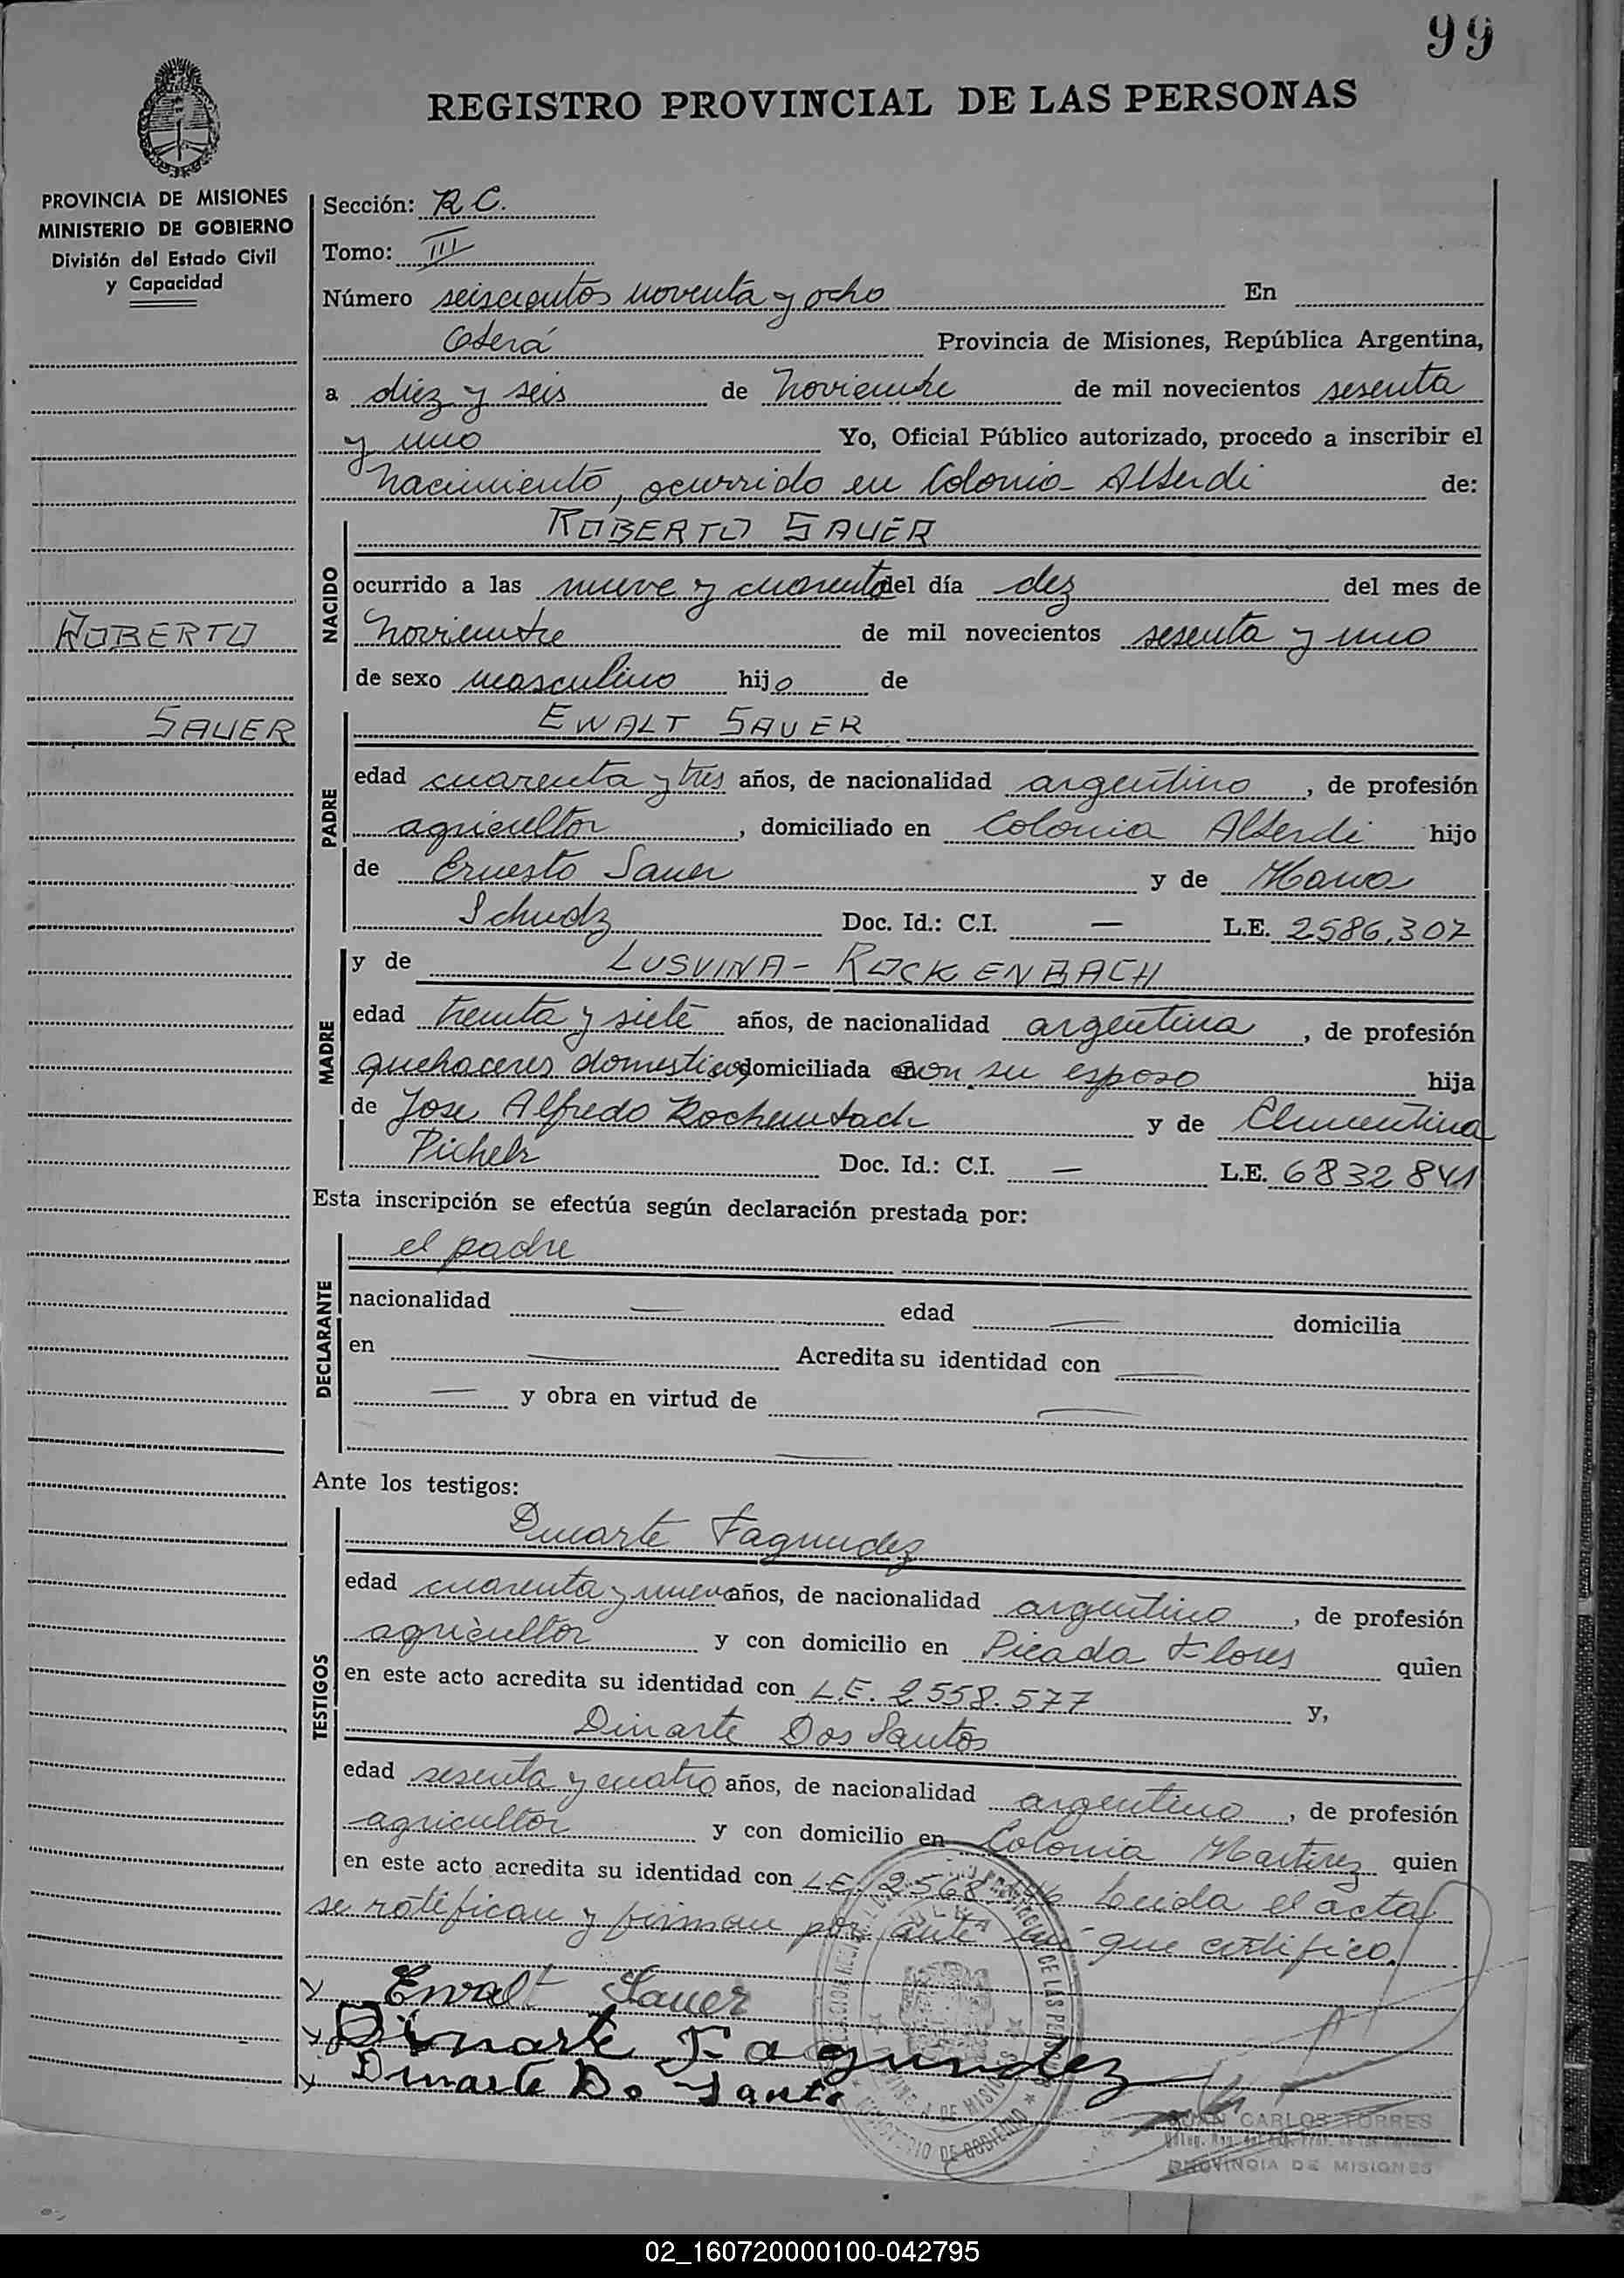 99
REGISTRO PROVINCIAL DE LAS PERSONAS
PROVINCIA DE MISIONES
MINISTERIO DE GOBIERNO
División del Estado Civil
y Capacidad
ROBERTO
SAUER
Sección: R C.
Tomo: III
Número seiscientos noventa y ocho En
Oberá Provincia de Misiones, República Argentina,
a diez y seis de Noviembre de mil novecientos sesenta
y uno Yo, Oficial Público autorizado, procedo a inscribir el
Nacimiento, ocurrido en Colonia Alberdi de:
NACIDO
ROBERTO SAUER
ocurrido a las nueve y cuarenta del día diez del mes de
Noviembre de mil novecientos sesenta y uno
de sexo masculino hijo de
PADRE
EWALT SAUER
edad cuarenta y tres años, de nacionalidad argentino, de profesión
agricultor, domiciliado en Colonia Alberdi hijo
de Ernesto Sauer y de Maria
Doc. Id.: C.I. — L.E. 2586.307
MADRE
y de LUSVINA - ROCKENBACH
edad treinta y siete años, de nacionalidad argentina, de profesión
quehaceres domesticos domiciliada en con su esposo hija
de Jose Alfredo Rockembach y de Clementina
Doc. Id.: C.I. — L.E. 6832841
Esta inscripción se efectúa según declaración prestada por:
DECLARANTE
el padre
nacionalidad — edad — domicilia
en — Acredita su identidad con —
— y obra en virtud de —
—
Ante los testigos:
TESTIGOS
Dinarte Fagundez
edad cuarenta y nueve años, de nacionalidad argentino, de profesión
agricultor y con domicilio en Picada Flores quien
en este acto acredita su identidad con L.E. 2558.577 y,
Dinarte Dos Santos
edad sesenta y cuatro años, de nacionalidad argentino, de profesión
agricultor y con domicilio en Colonia Martirez quien
en este acto acredita su identidad con L.E. Leida el acta
se ratifican y firman por ante mi que certifico.
Ewalt Sauer
Dinarte Fagundez
Dinarte Do Santo
MINISTERIO DE GOBIERNO
JUAN CARLOS TORRES
PROVINCIA DE MISIONES
02_160720000100-042795